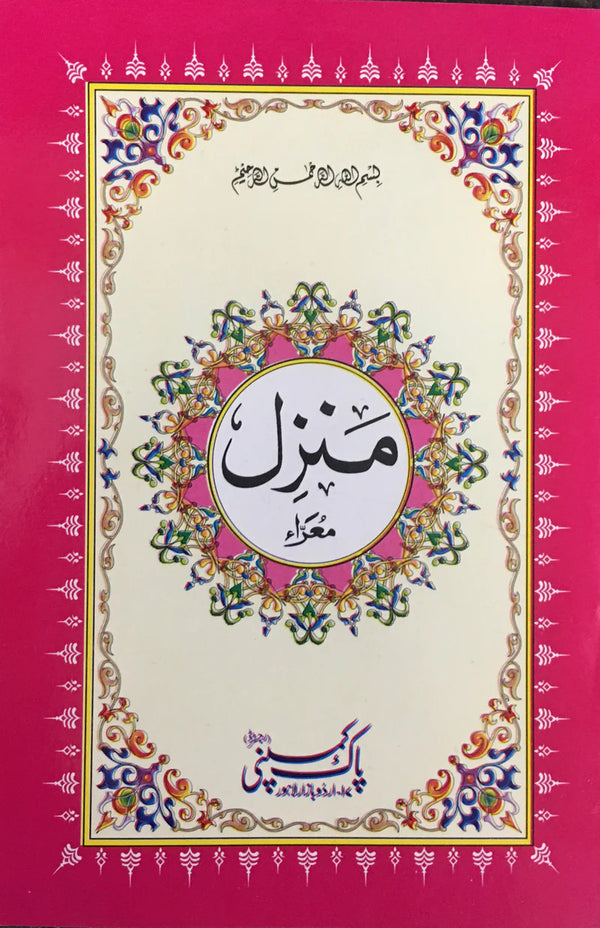 بِسْمِ اللهِ الرَّحْمٰنِ الرَّحِيْمِ
مَنْزِل
مُعَرّاء
پاک کمپنی (رجسٹرڈ)
۱۷-اردو بازار لاہور